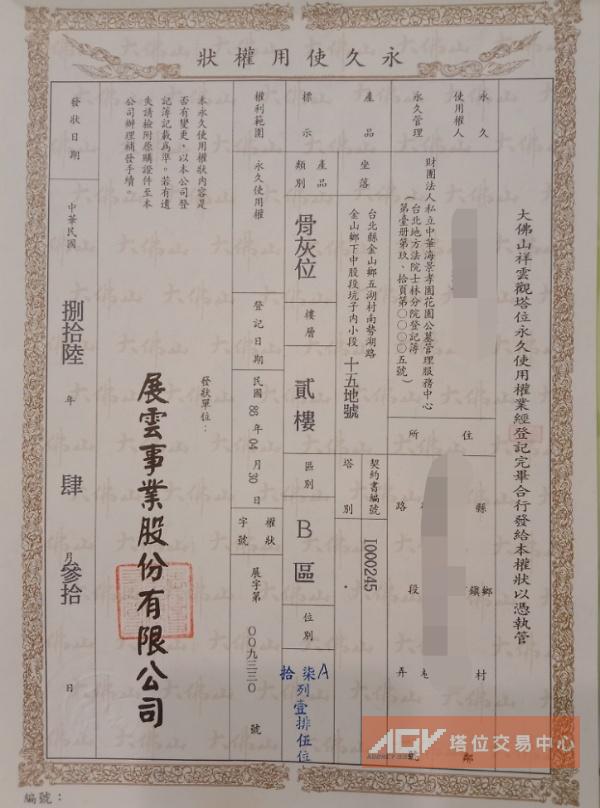 永久使用權狀
大佛山祥雲觀塔位永久使用權業經登記完畢合行發給本權狀以憑執管
永久
使用權人
住
所
縣
鄉
鎮
村
路
段
弄
號
永久管理
財團法人私立中華海景孝園花園公墓管理服務中心
(台北地方法院士林分院登記簿
第壹冊第玖、拾頁第○○○○五號)
產品
標示
坐落
台北縣金山鄉五湖村南勢湖路
金山鄉下中股段坑子內小段 十五地號
契約書編號
I000245
塔別
產品
類別
骨灰位
樓層
貳樓
區別
B區
位別
A
柒列壹排伍位
拾
權利範圍
永久使用權
登記日期
民國 86 年 04 月 30 日
權狀
字號
展字第 ○○九三三○ 號
本永久使用權狀內容是
否有變更,以本公司登
記簿記載為準。若有遺
失請檢附原購證件至本
公司辦理補發手續。
發狀單位:
展雲事業股份有限公司
發狀日期
中華民國 捌拾陸 年 肆 月 參拾 日
編號:
AGV 塔位交易中心